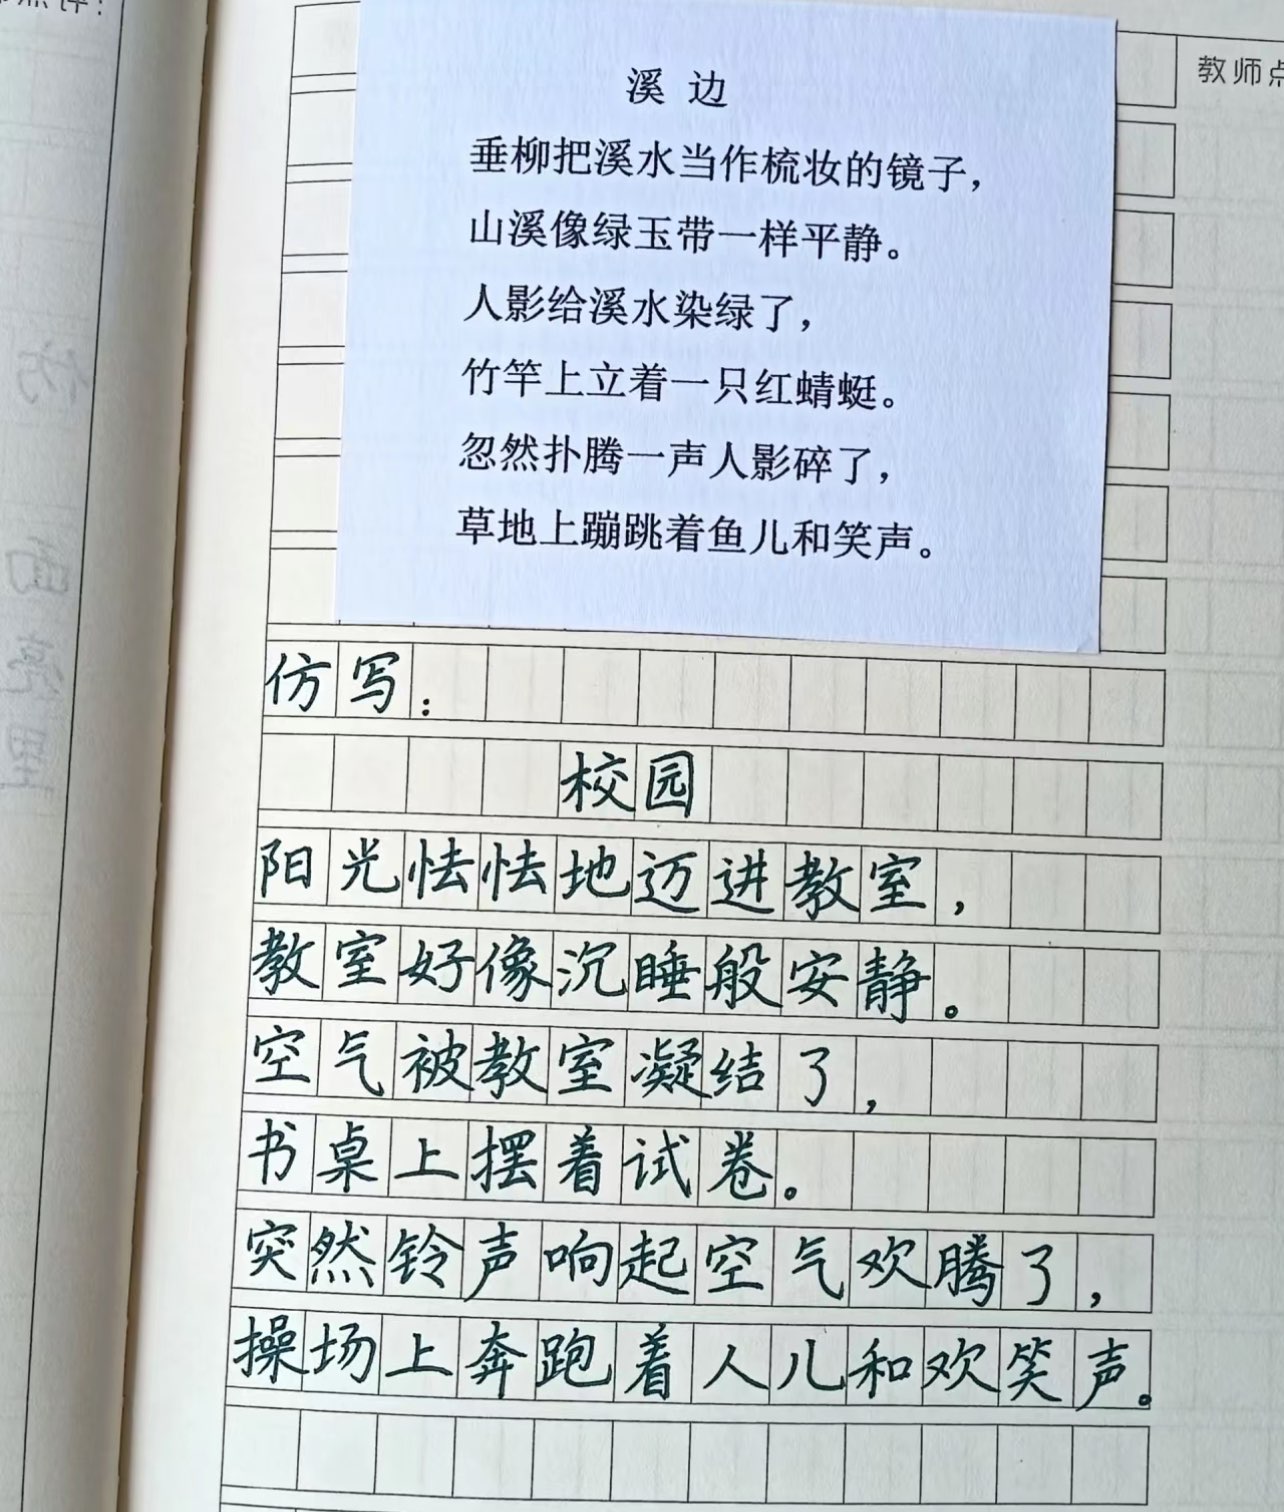 教师点
溪 边
垂柳把溪水当作梳妆的镜子，
山溪像绿玉带一样平静。
人影给溪水染绿了，
竹竿上立着一只红蜻蜓。
忽然扑腾一声人影碎了，
草地上蹦跳着鱼儿和笑声。
仿写：
校园
阳光怯怯地迈进教室，
教室好像沉睡般安静。
空气被教室凝结了，
书桌上摆着试卷。
突然铃声响起空气欢腾了，
操场上奔跑着人儿和欢笑声。